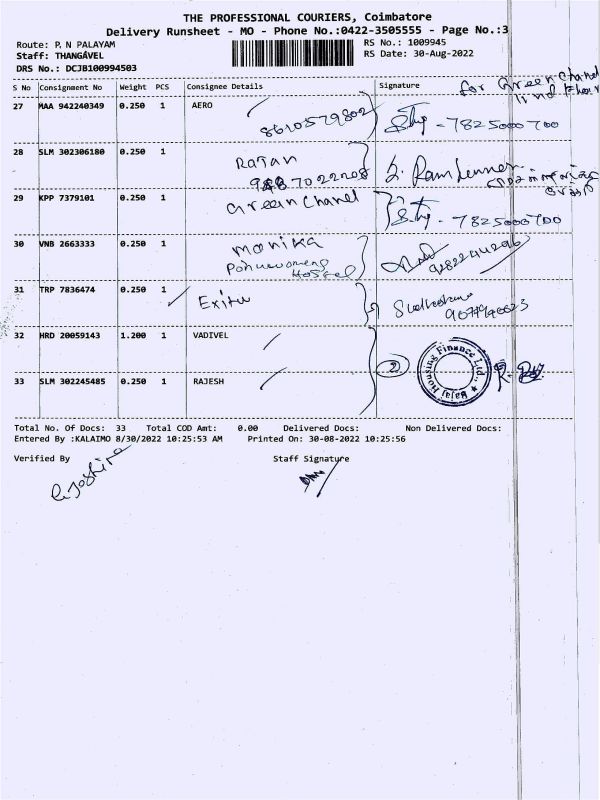 THE PROFESSIONAL COURIERS, Coimbatore
Delivery Runsheet - MO - Phone No.:0422-3505555 - Page No.:3
Route: P. N PALAYAM
RS No.: 1009945
Staff: THANGAVEL
RS Date: 30-Aug-2022
DRS No.: DCJB100994503
S No Consignment No Weight PCS Consignee Details Signature
for Green Chanel
27 MAA 942240349 0.250 1 AERO
8610579802
- 7825000700
28 SLM 302306180 0.250 1
Rajan
7022208
29 KPP 7379101 0.250 1 Green Chanel
- 7825000700
30 VNB 2663333 0.250 1 Monika
Hostel
31 TRP 7836474 0.250 1
32 HRD 20059143 1.200 1 VADIVEL
2 Bajaj Housing Finance Ltd.,
33 SLM 302245485 0.250 1 RAJESH
Total No. Of Docs: 33 Total COD Amt: 0.00 Delivered Docs: Non Delivered Docs:
Entered By :KALAIMO 8/30/2022 10:25:53 AM Printed On: 30-08-2022 10:25:56
Verified By Staff Signature